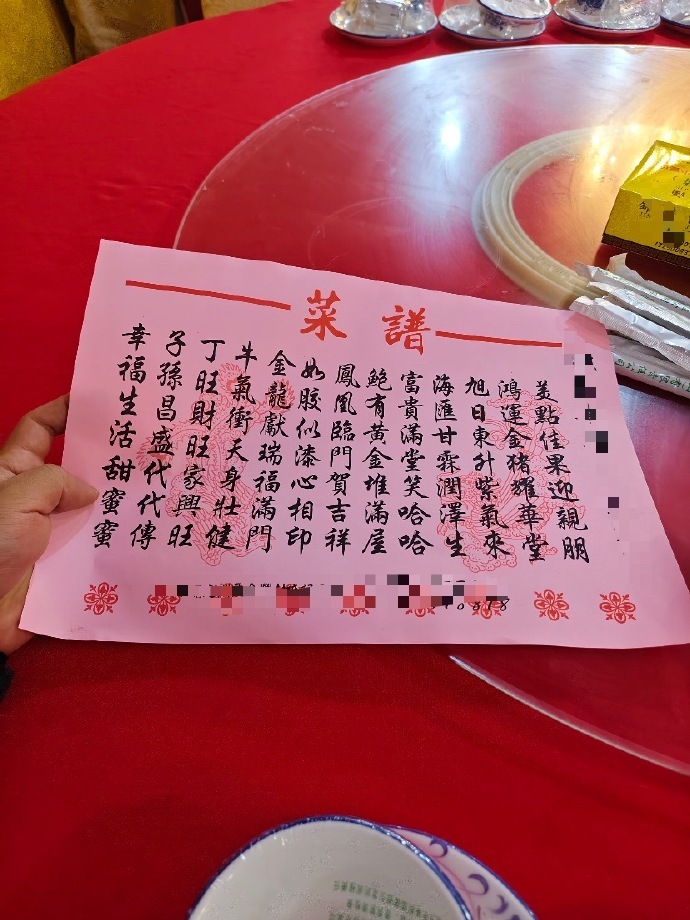 菜譜
美點佳果迎親朋
鴻運金猪耀華堂
旭日東升紫氣來
海匯甘霖潤澤生
富貴滿堂笑哈哈
鮑有黃金堆滿屋
鳳凰臨門賀吉祥
如胶似漆心相印
金龍獻瑞福滿門
牛氣衝天身壯健
丁旺財旺家興旺
子孫昌盛代代傳
幸福生活甜蜜蜜